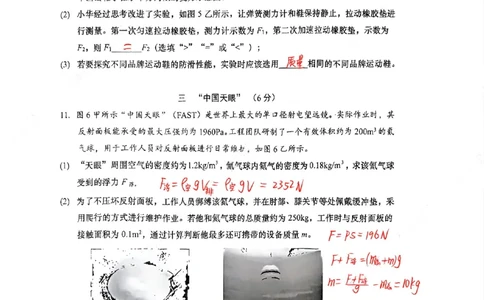 (2) 小华经过思考改进了实验，如图5乙所示，让弹簧测力计和鞋保持静止，拉动橡胶垫进
行测量。第一次匀速拉动橡胶垫，测力计示数为F₁，第二次加速拉动橡胶垫，示数为
F₂，则F₁ = F₂（选填“>”“=”或“<”）；
(3) 若要探究不同品牌运动鞋的防滑性能，实验时应该选用 质量 相同的不同品牌运动鞋。
三 “中国天眼”（6分）
11. 图6甲所示“中国天眼”（FAST）是世界上最大的单口径射电望远镜。实际作业时，其
反射面板能承受的最大压强约为1960Pa。工程团队研制了一个有效体积约为200m³的氦
气球，用于工作人员对反射面板进行日常维护，如图6乙所示。
(1) “天眼”周围空气的密度约为1.2kg/m³，氦气球内氦气的密度为0.18kg/m³，求该氦气球
受到的浮力F浮. F浮=ρ空gV排=ρ空gV = 2352N
(2) 为了不压坏反射面板，工作人员绑缚该氦气球，并在肘部、膝关节等处佩戴缓冲垫，采
用爬行的方式进行维护作业。若他和氦气球的总质量约为250kg，工作时与反射面板的
接触面积为0.1m²，通过计算判断他最多还可携带的设备质量m。 F=pS=196N
F+F浮=(m总+m)g
m=(F+F浮)/g-m总=10kg